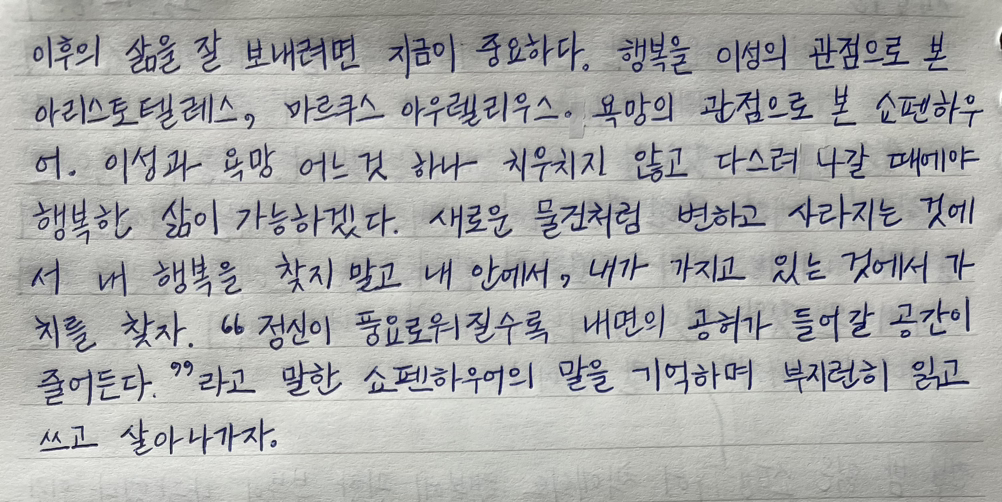 이후의 삶을 잘 보내려면 지금이 중요하다. 행복을 이성의 관점으로 본
아리스토텔레스, 마르쿠스 아우렐리우스. 욕망의 관점으로 본 쇼펜하우
어. 이성과 욕망 어느것 하나 치우치지 않고 다스려 나갈 때에야
행복한 삶이 가능하겠다. 새로운 물건처럼 변하고 사라지는 것에
서 내 행복을 찾지 말고 내 안에서, 내가 가지고 있는 것에서 가
치를 찾자. “정신이 풍요로워질수록 내면의 공허가 들어갈 공간이
줄어든다.”라고 말한 쇼펜하우어의 말을 기억하며 부지런히 읽고
쓰고 살아나가자.